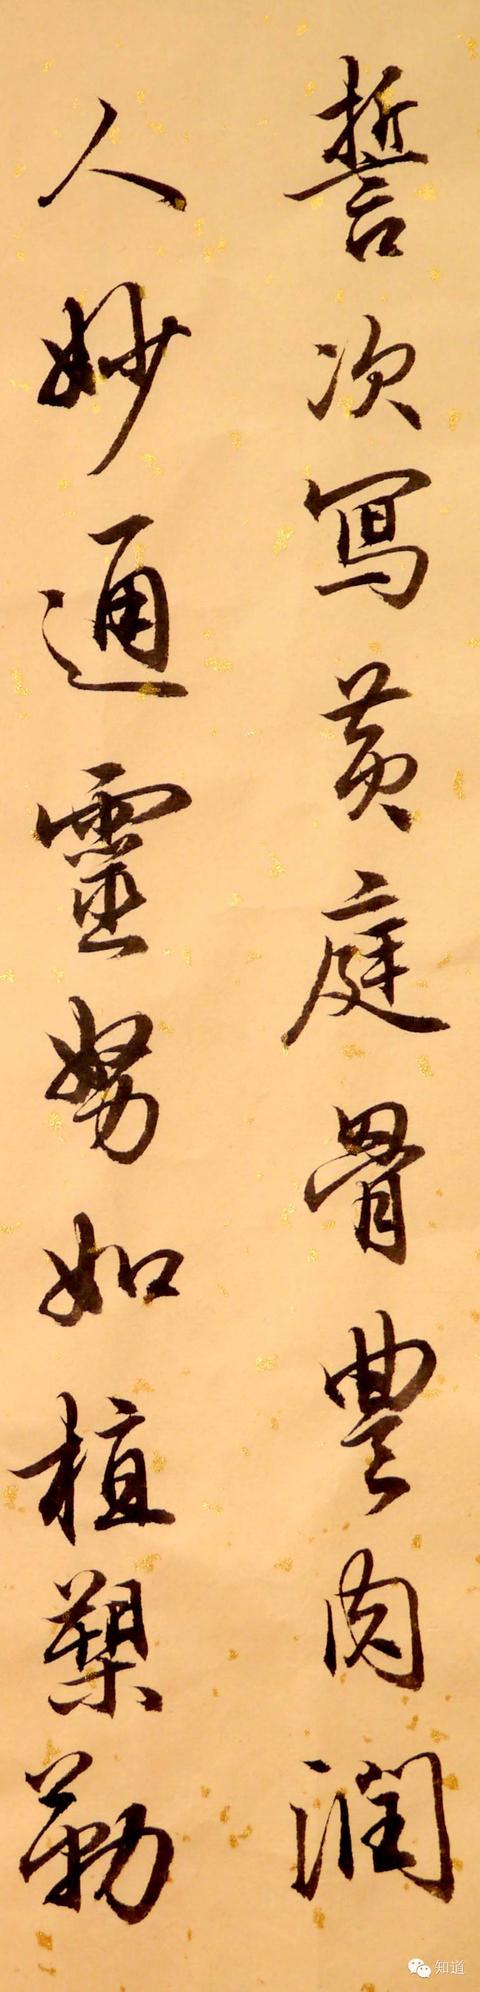 誓次寫黄庭骨豐肉潤
人妙通靈努如植槊勒
知道